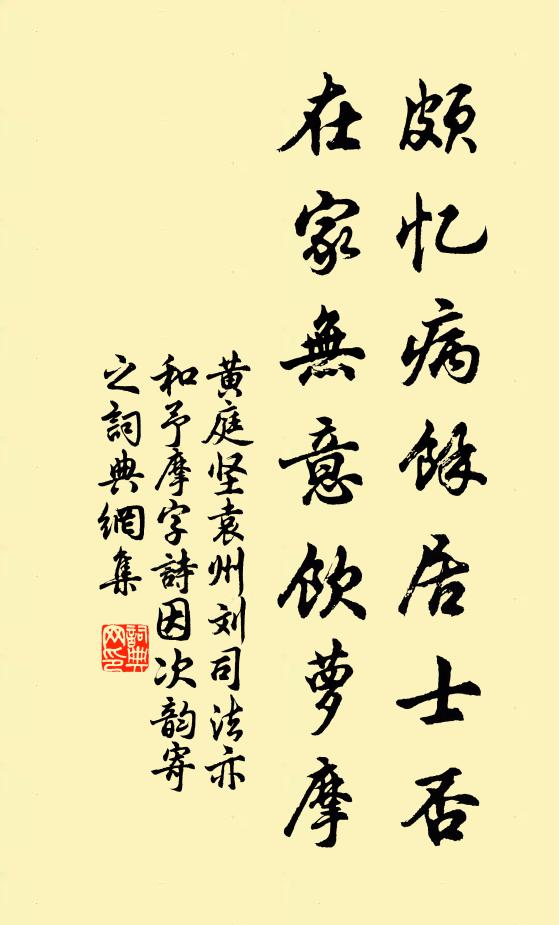 颇忆病餘居士否
在家無意飲萝摩
黄庭坚袁州刘司法亦
和予摩字詩因次韵寄
之詞典網集
詞典網印